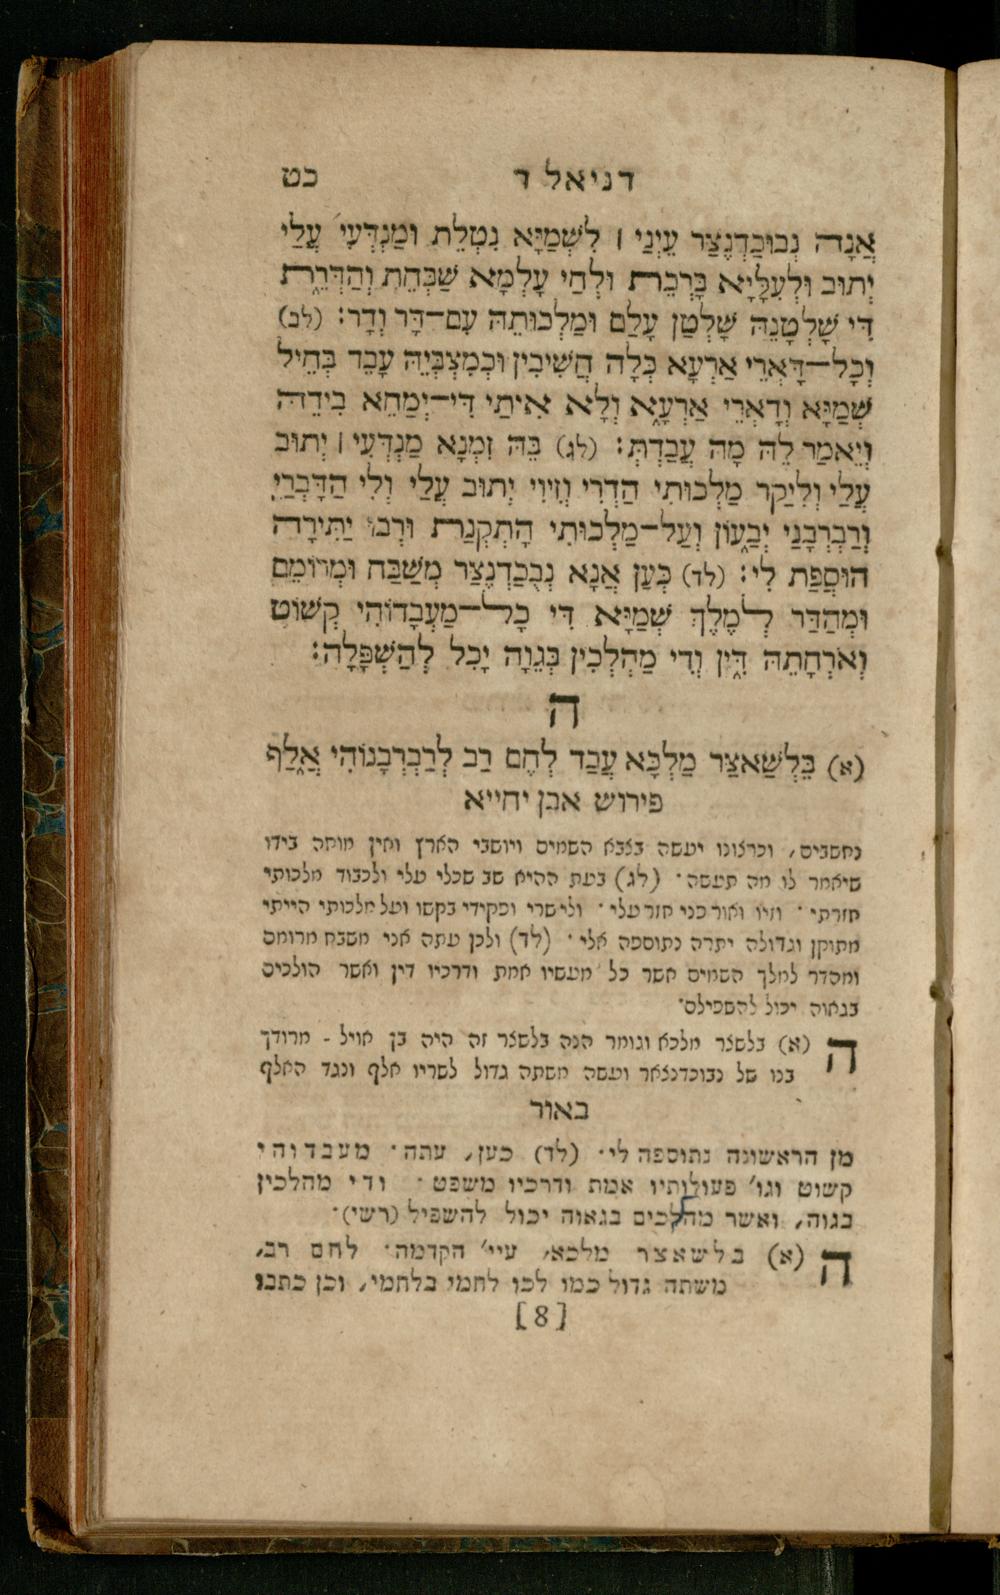 דניאל ד כט
אֲנָה נְבוּכַדְנֶצַּר עַיְנַי ׀ לִשְׁמַיָּא נִטְלֵת וּמַנְדְּעִי עֲלַי
יְתוּב וּלְעִלָּיָא בָּרְכֵת וּלְחַי עָלְמָא שַׁבְּחֵת וְהַדְּרֵ֑ת
דִּי שָׁלְטָנֵהּ שָׁלְטָן עָלַם וּמַלְכוּתֵהּ עִם־דָּר וְדָר׃ (לב)
וְכָל־דָּאְרֵי אַרְעָא כְּלָה חֲשִׁיבִין וּכְמִצְבְּיֵהּ עָבֵד בְּחֵיל
שְׁמַיָּא וְדָאְרֵי אַרְעָ֑א וְלָא אִיתַי דִּי־יְמַחֵא בִידֵהּ
וְיֵאמַר לֵהּ מָה עֲבַדְתְּ׃ (לג) בֵּהּ זִמְנָא מַנְדְּעִי ׀ יְתוּב
עֲלַי וְלִיקַר מַלְכוּתִי הַדְרִי וְזִיוִי יְתוּב עֲלַי וְלִי הַדָּבְרַי
וְרַבְרְבָנַי יְבַע֑וֹן וְעַל־מַלְכוּתִי הָתְקְנַת וּרְבוּ יַתִּירָה
הוּסֲפַת לִי׃ (לד) כְּעַן אֲנָא נְבֻכַדְנֶצַּר מְשַׁבַּח וּמְרוֹמֵם
וּמְהַדַּר לְמֶלֶךְ שְׁמַיָּא דִּי כָל־מַעֲבָדוֹהִי קְשׁוֹט
וְאֹרְחָתֵהּ דִּ֑ין וְדִי מַהְלְכִין בְּגֵוָה יָכִל לְהַשְׁפָּלָה׃
ה
(א) בֵּלְשַׁאצַּר מַלְכָּא עֲבַד לְחֶם רַב לְרַבְרְבָנוֹהִי אֲלַ֑ף
פירוש אבן יחייא
נחשבים, וכרצונו יעשה בצבא השמים ויושבי הארץ ואין מוחה בידו
שיאמר לו מה תעשה· (לג) בעת ההיא שב שכלי עלי ולכבוד מלכותי
חזרתי · וזיו ואור פני חזר עלי · ולי שרי ופקידי בקשו ועל מלכותי הייתי
מתוקן וגדולה יתרה נתוספה אלי · (לד) ולכן עתה אני משבח מרומם
ומהדר למלך השמים אשר כל מעשיו אמת ודרכיו דין ואשר הולכים
בגאוה יכול להשפילם·
ה (א) בלשצר מלכא וגומר הנה בלשצר זה היה בן אויל - מרודך
בנו של נבוכדנצאר ועשה משתה גדול לשריו אלף ונגד האלף
באור
מן הראשונה נתוספה לי· (לד) כען, עתה· מעבדוהי
קשוט וגו' פעולותיו אמת ודרכיו משפט · ודי מהלכין
בגוה, ואשר מהלכים בגאוה יכול להשפיל (רשי)·
ה (א) בלשאצר מלכא, עיי' הקדמה· לחם רב,
משתה גדול כמו לכו לחמי בלחמי, וכן כתבו
[8]